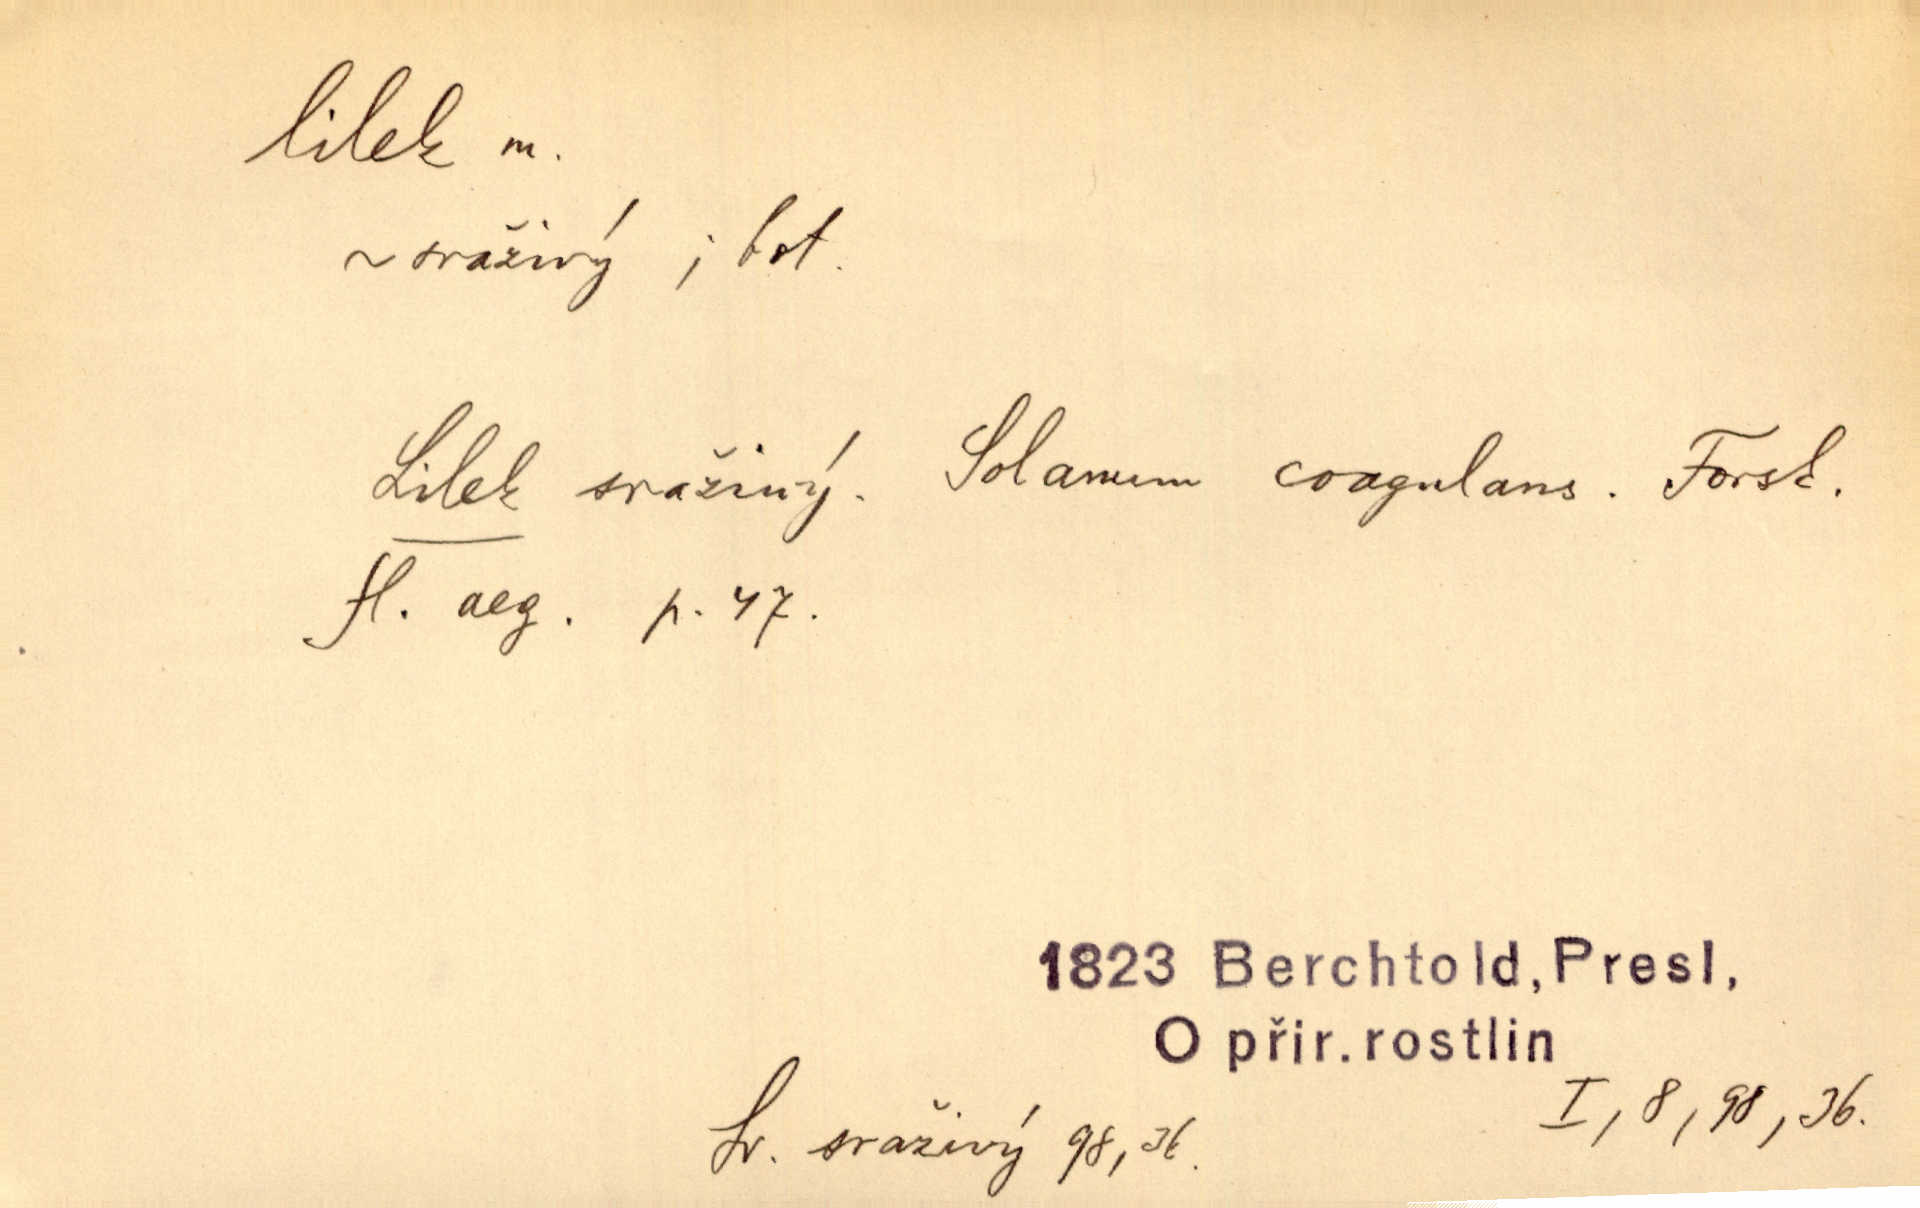 lilek m.
~ sraživý ; bot.
Lilek sražiwý. Solanum coagulans. Forsk.
fl. aeg. p. 47.
1823 Berchtold, Presl,
O přir. rostlin
I, 8, 98, 36.
Sr. sraživý 98, 36.